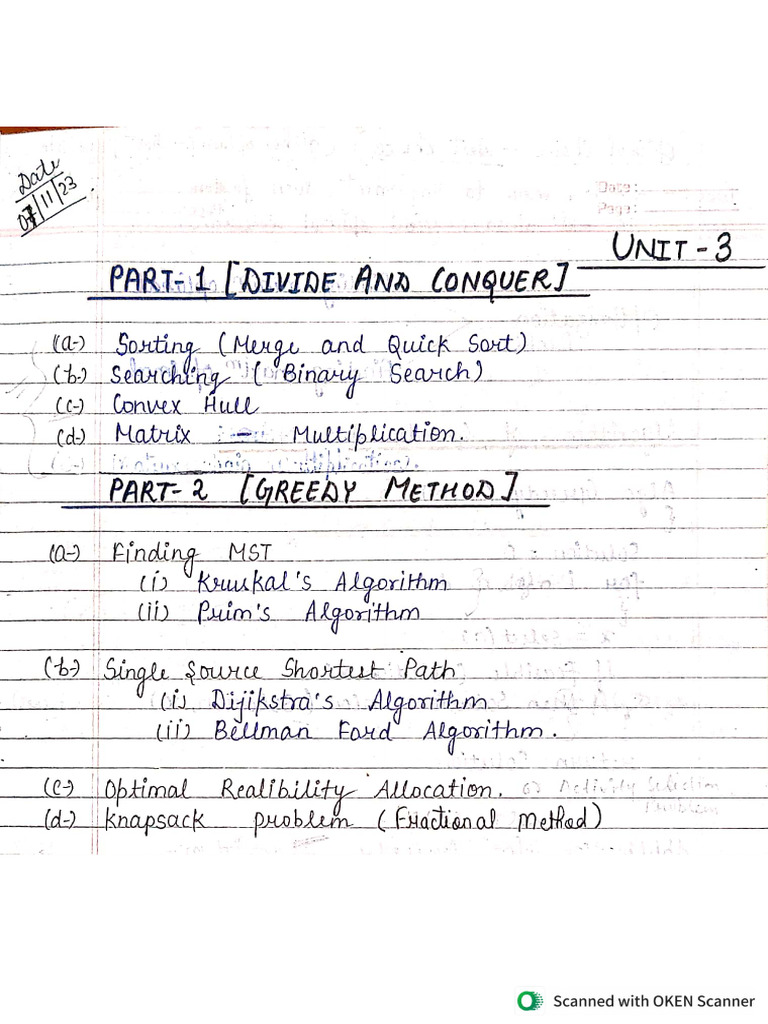 Date
07/11/23.
Date:
Page:
UNIT-3
PART-1 [DIVIDE AND CONQUER]
(a-) Sorting (Merge and Quick Sort)
(b-) Searching ( Binary Search)
(c-) Convex Hull
(d-) Matrix - Multiplication.
PART-2 [GREEDY METHOD]
(a-) Finding MST
(i) Kruskal's Algorithm
(ii) Prim's Algorithm
(b-) Single Source Shortest Path
(i) Dijikstra's Algorithm
(ii) Bellman Ford Algorithm.
(c-) Optimal Realibility Allocation.
(d-) Knapsack problem (Fractional Method)
Scanned with OKEN Scanner